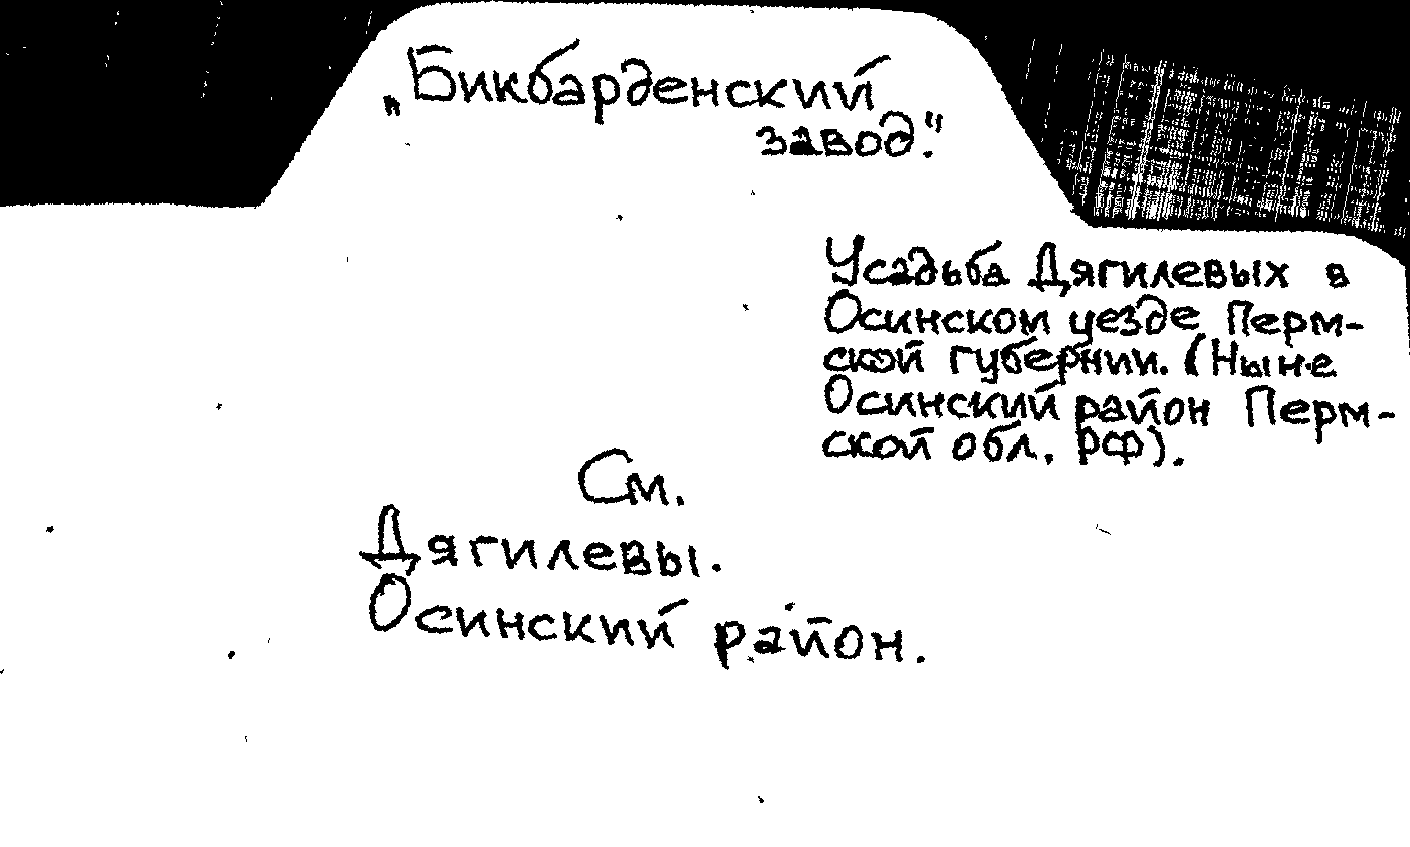 „Бикбарденский
завод."
Усадьба Дягилевых в
Осинском уезде Перм-
ской губернии. (Ныне
Осинский район Перм-
ской обл. РФ).
См.
Дягилевы.
Осинский район.